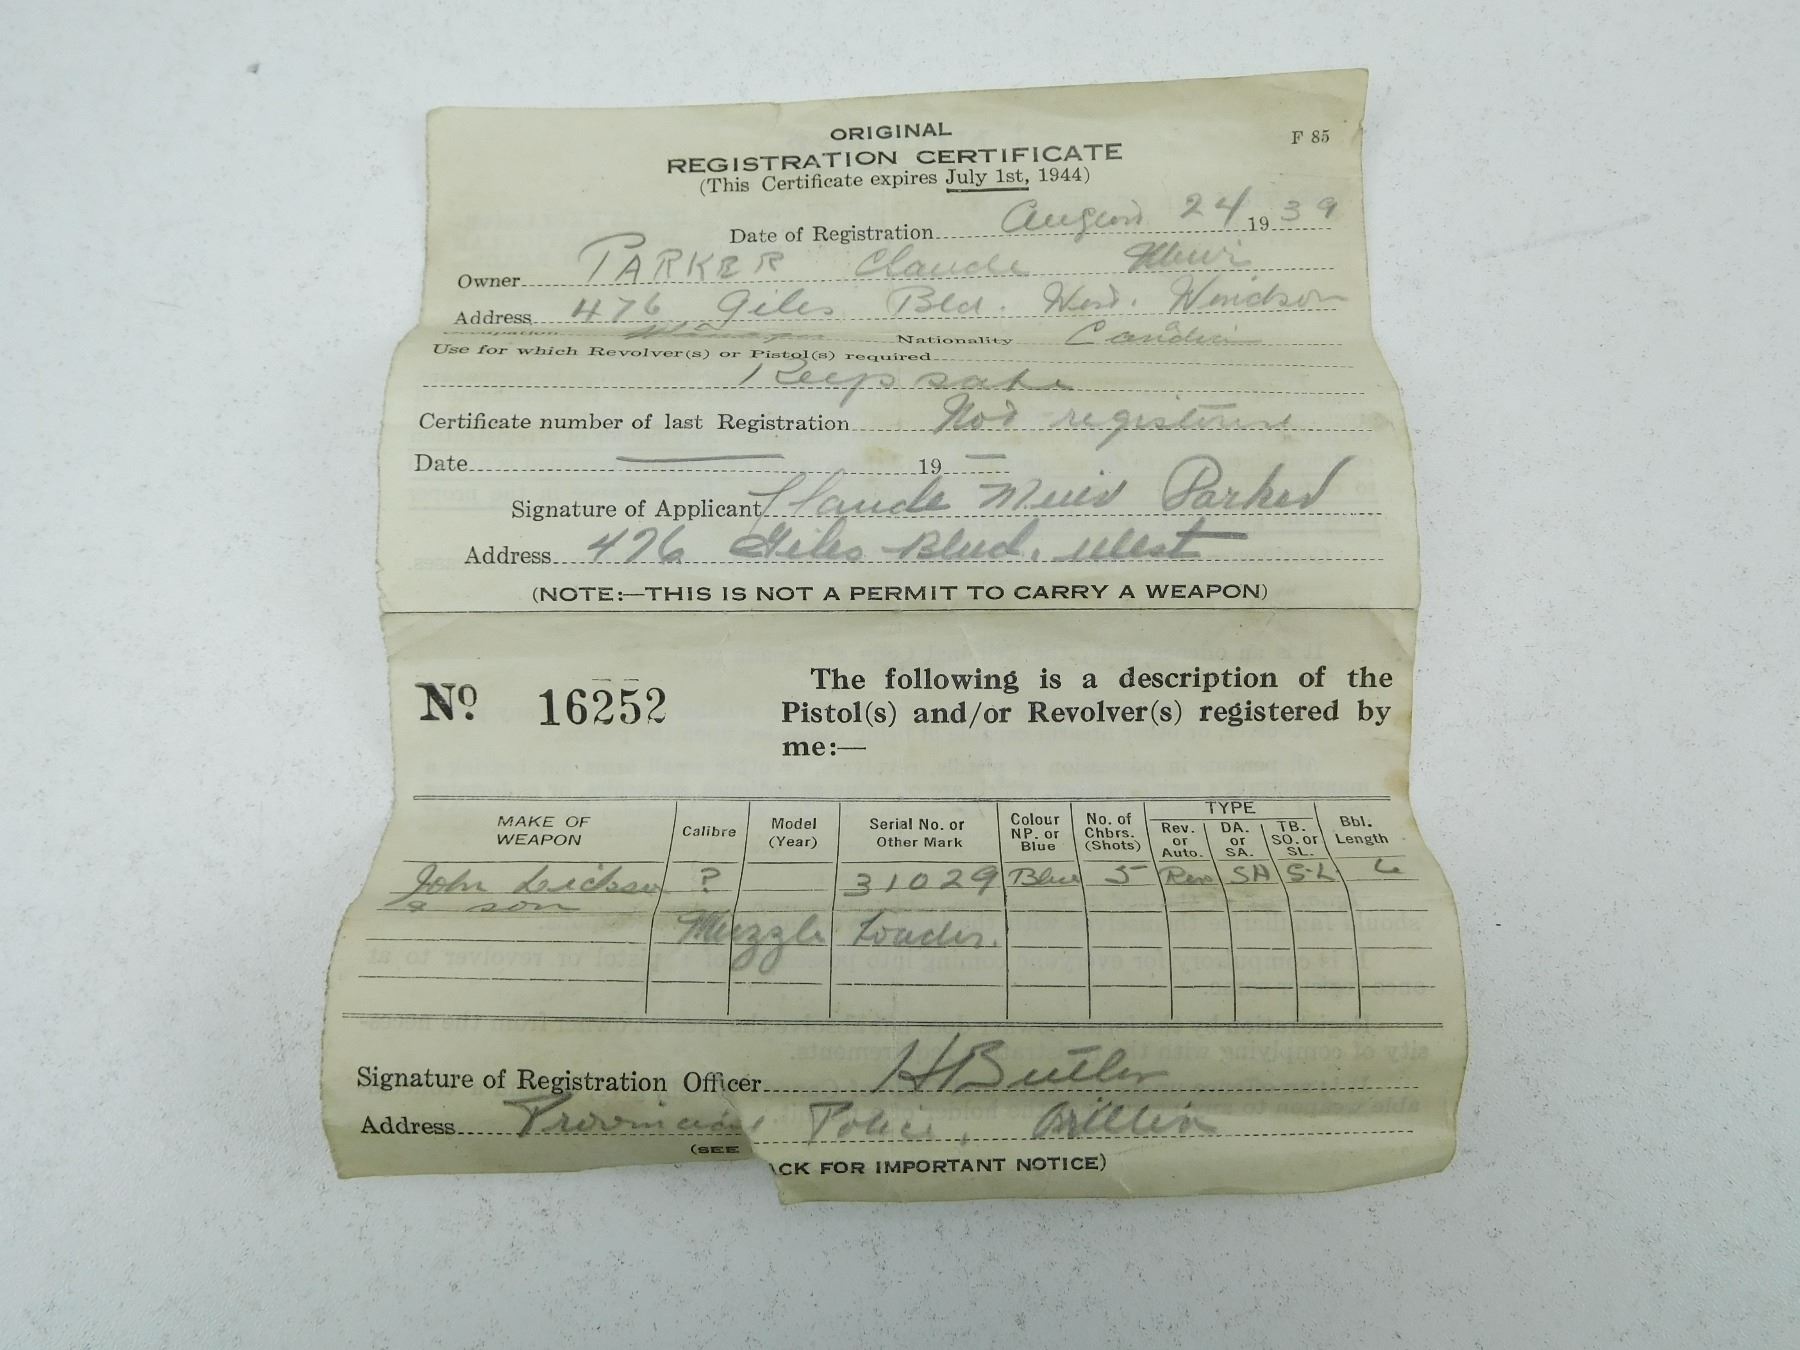 ORIGINAL
F 85
REGISTRATION CERTIFICATE
(This Certificate expires July 1st, 1944)
Date of Registration August 24 1939
Owner PARKER Claude Muir
Address 476 Giles Bld. West. Windsor
Nationality
Use for which Revolver(s) or Pistol(s) required
Keepsake
Certificate number of last Registration Not
Date — 19 —
Signature of Applicant Claude Muir Parker
Address 476 Giles Blvd. West
(NOTE:—THIS IS NOT A PERMIT TO CARRY A WEAPON)
No. 16252
The following is a description of the
Pistol(s) and/or Revolver(s) registered by
me:—
MAKE OF WEAPON Calibre Model (Year) Serial No. or Other Mark Colour NP. or Blue No. of Chbrs. (Shots) TYPE Rev. or Auto. DA. or SA. TB. SO. or SL. Bbl. Length
John ? 31029 Blue 5 Rev SA S-L 6
& son
Muzzle Loader.
Signature of Registration Officer H Butler
Address Provincial Police,
(SEE ACK FOR IMPORTANT NOTICE)